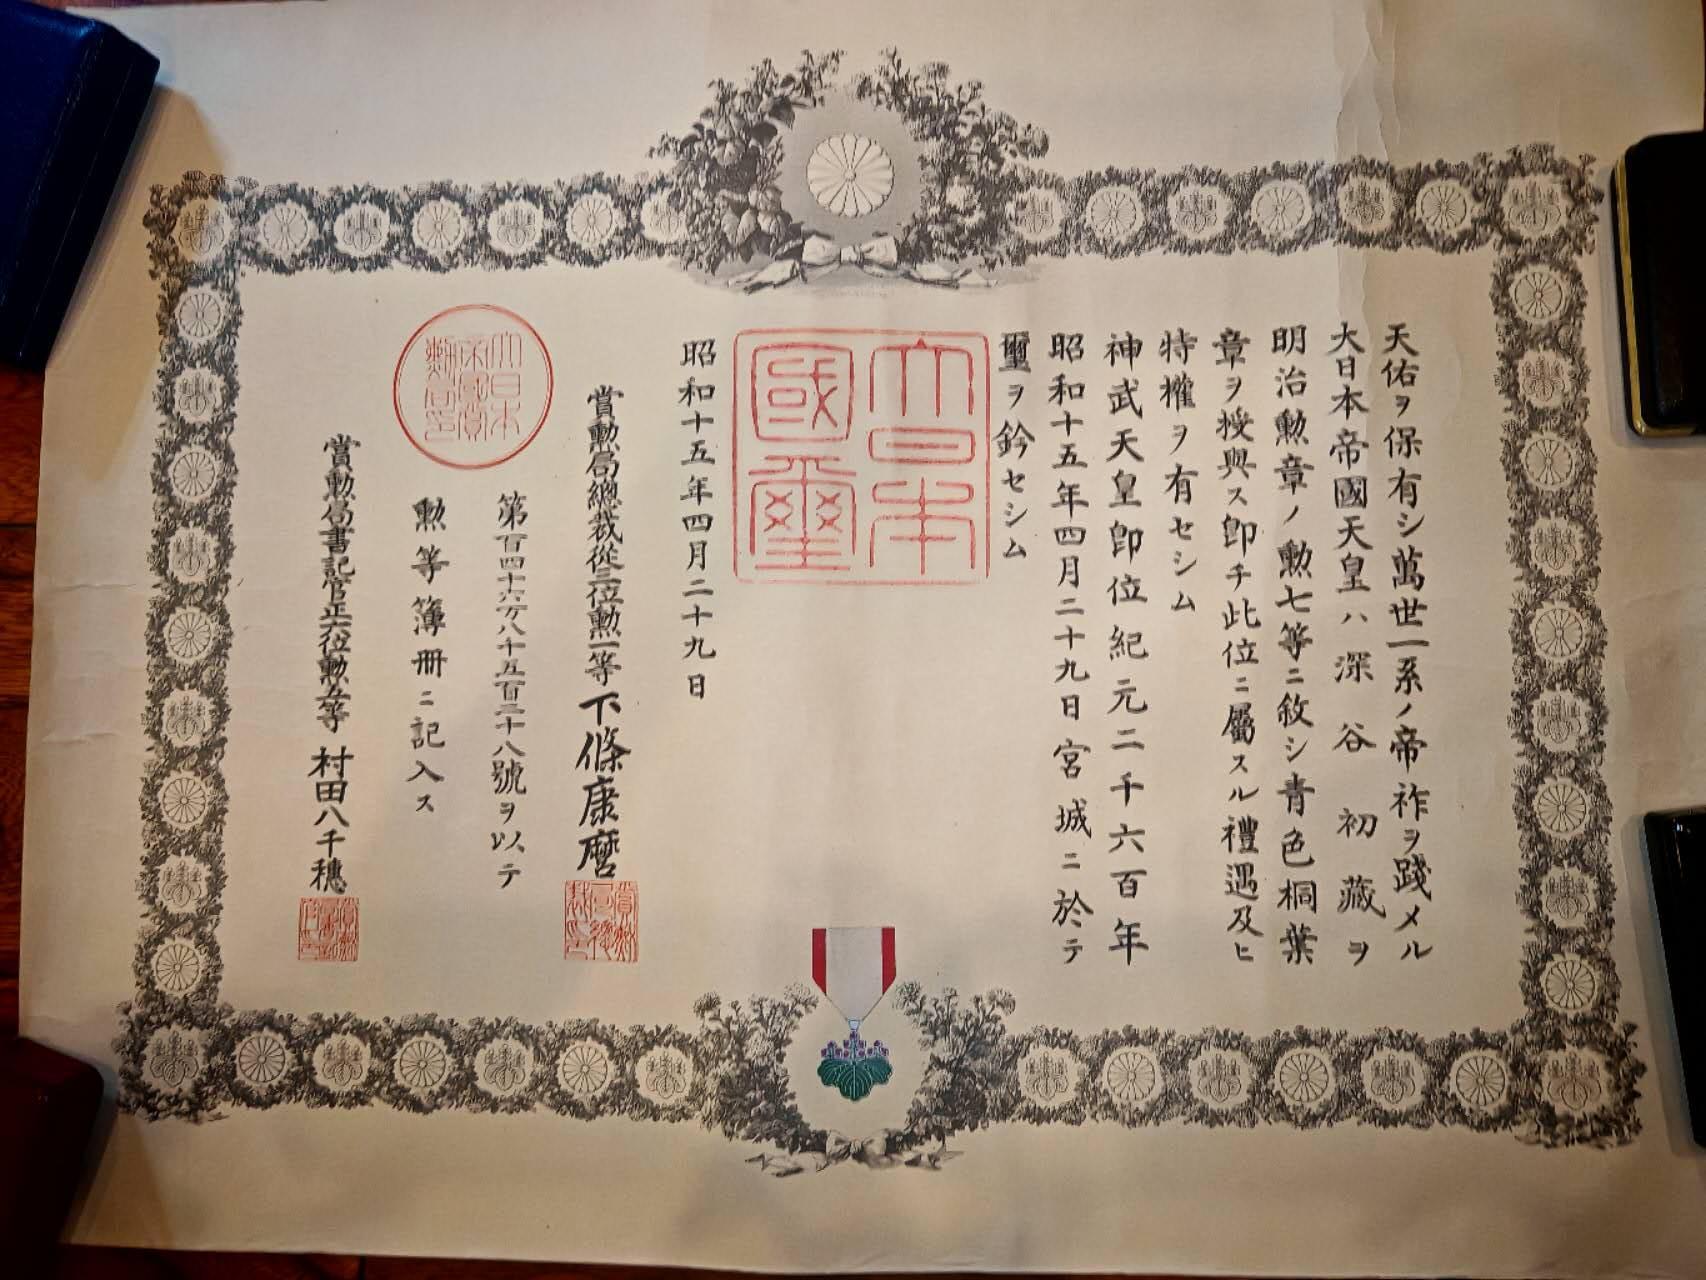 天佑ヲ保有シ萬世一系ノ帝祚ヲ踐メル
大日本帝國天皇ハ深谷初藏ヲ
明治勲章ノ勲七等ニ敘シ青色桐葉
章ヲ授與ス即チ此位ニ屬スル禮遇及ヒ
特權ヲ有セシム
神武天皇即位紀元二千六百年
昭和十五年四月二十九日宮城ニ於テ
璽ヲ鈐セシム
大日本
國璽
昭和十五年四月二十九日
賞勲局總裁從三位勲一等下條康麿
賞勲局總裁之印
第百四十六万八千五百三十八號ヲ以テ
勲等簿冊ニ記入ス
大日本
帝國賞
勲局印
賞勲局書記官正六位勲五等村田八千穗